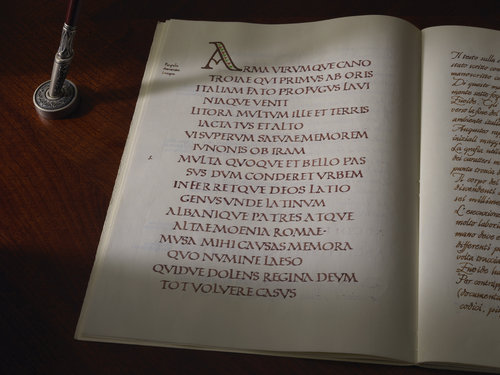 ARMA VIRVM QVE CANO
TROIAE QVI PRIMVS AB ORIS
ITALIAM FATO PROFVGVS LAVI
NIAQVE VENIT
LITORA MVLTVM ILLE ET TERRIS
IACTATVS ET ALTO
VI SVPERVM SAEVAE MEMOREM
IVNONIS OB IRAM
MVLTA QVOQVE ET BELLO PAS
SVS DVM CONDERET VRBEM
INFERRETQVE DEOS LATIO
GENVS VNDE LATINVM
ALBANIQVE PATRES ATQVE
ALTAE MOENIA ROMAE
MVSA MIHI CAVSAS MEMORA
QVO NVMINE LAESO
QVIDVE DOLENS REGINA DEVM
TOT VOLVERE CASVS
Il testo sulla
stato scritto
manoscritto
Di questo
verso la fine
Augustus
iniziali
La grafia
dei caratteri
Il corpo dei
discendenti
L'esecuzione
molto
mano deve
differenti
volta
Par
(document
codici,